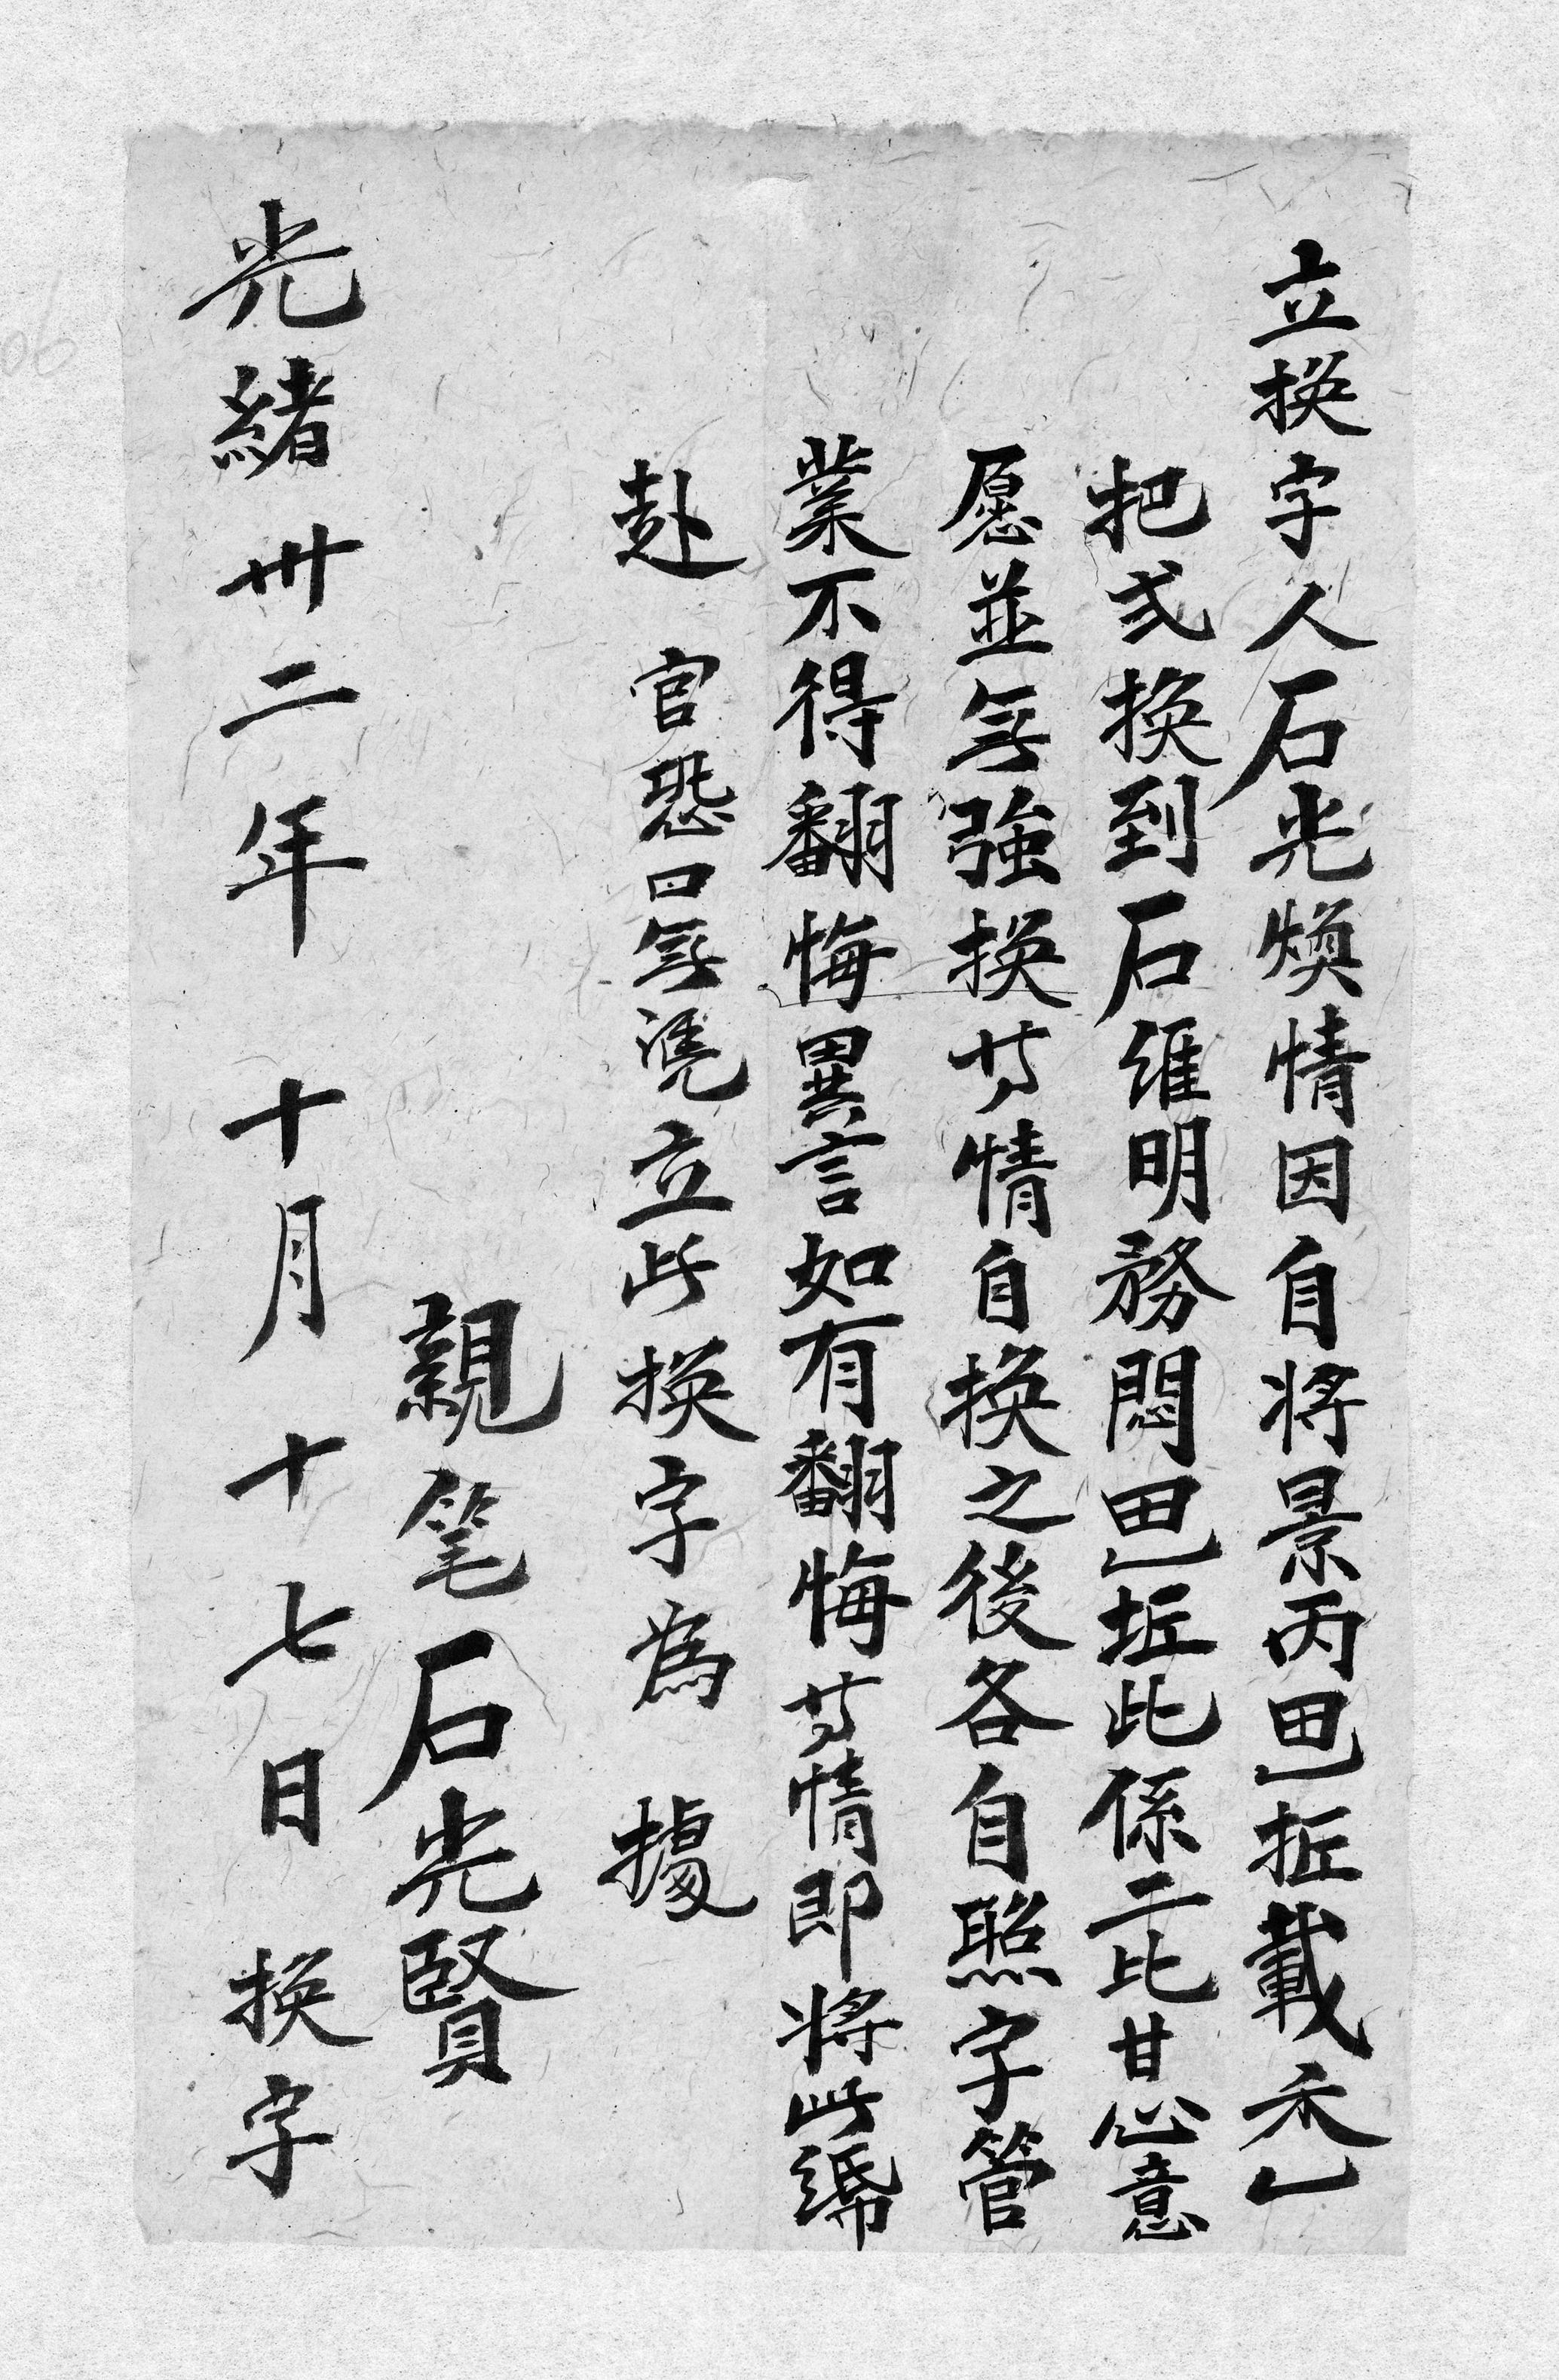 立換字人石光煥情因自將景丙田一坵載禾一
把弍換到石維明務悶田一坵此係二比甘心意
愿並無強換䓁情自換之後各自照字管
業不得翻悔異言如有翻悔䓁情即將此
赴 官恐口無凴立此換字為 據
親笔石光賢
光緒卅二年 十月十七日 換字